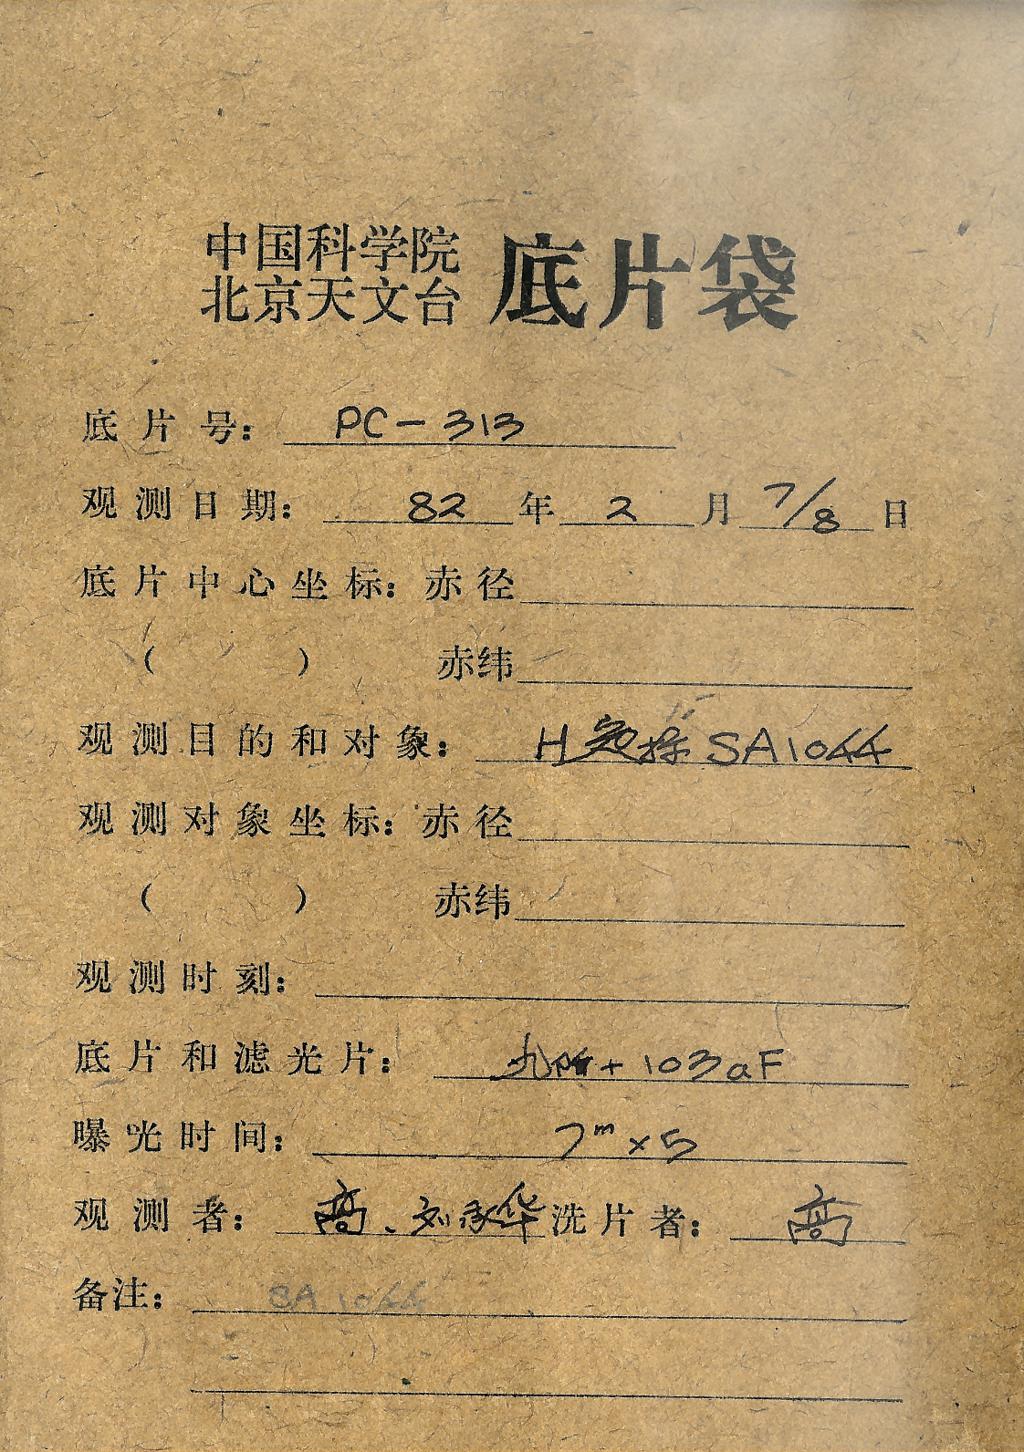 中国科学院
北京天文台 底片袋
底片号: PC-313
观测日期: 82年2月7/8日
底片中心坐标: 赤径
( ) 赤纬
观测目的和对象: H SA1044
观测对象坐标: 赤径
( ) 赤纬
观测时刻:
底片和滤光片: + 103aF
曝光时间: 7m×5
观测者: 高、刘承华 洗片者: 高
备注: SA 1044